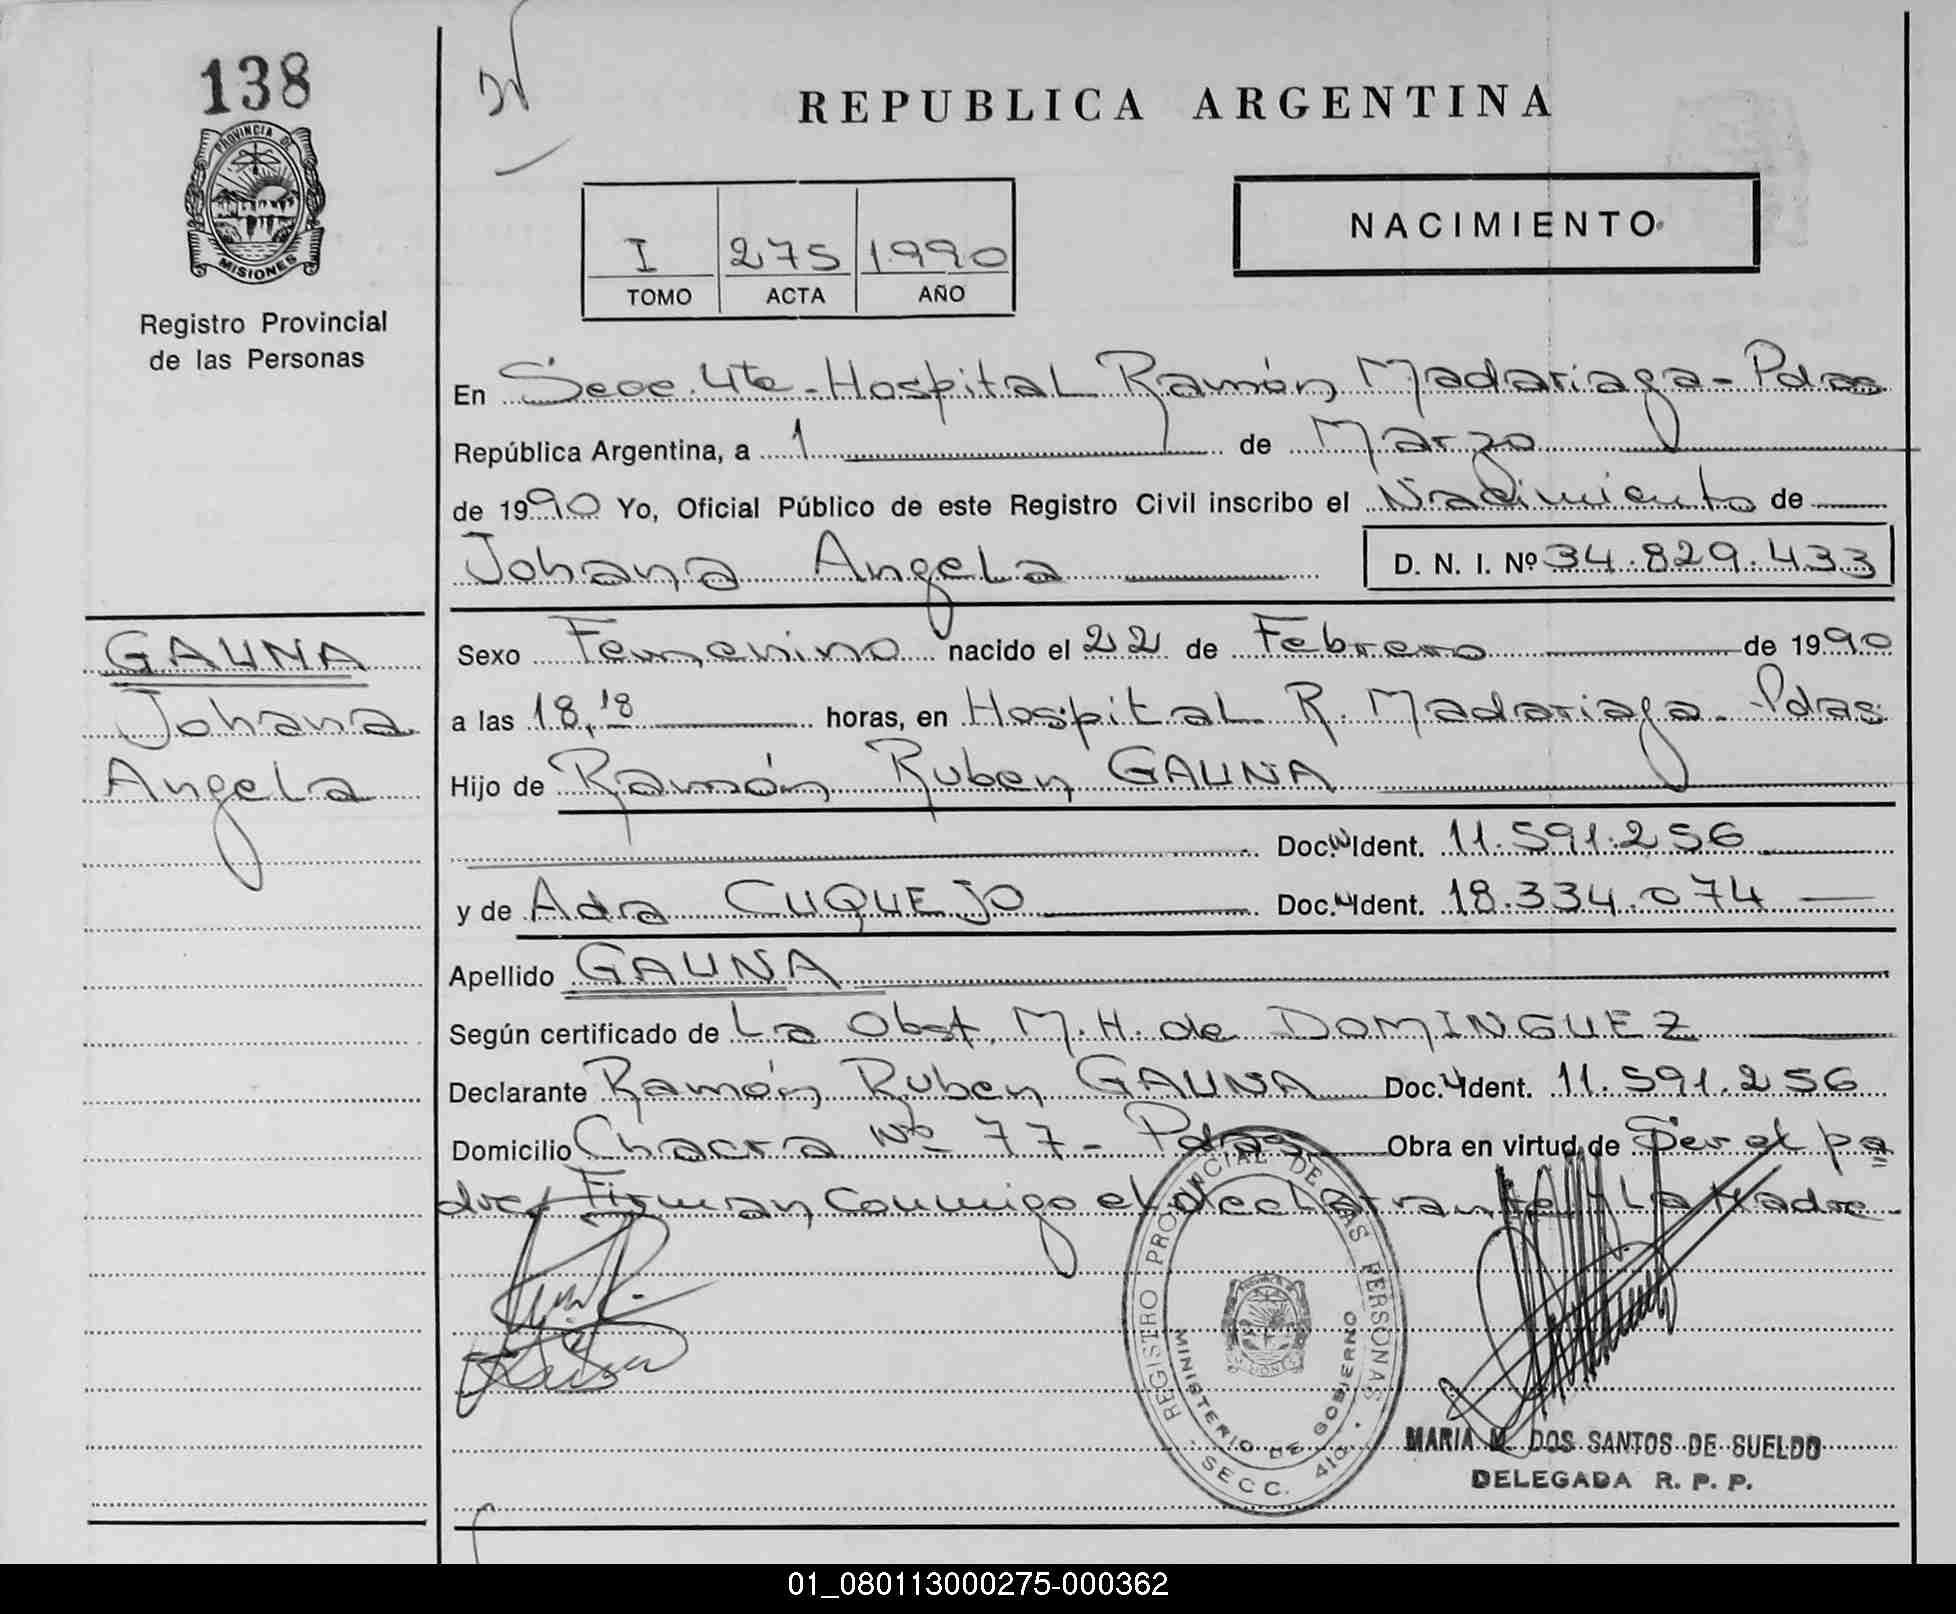 138
PROVINCIA DE
MISIONES
Registro Provincial
de las Personas
REPUBLICA ARGENTINA
NACIMIENTO
I 275 1990
TOMO ACTA AÑO
En Secc. 4ta - Hospital Ramón Madariaga - Pdas
República Argentina, a 1 de Marzo
de 1990 Yo, Oficial Público de este Registro Civil inscribo el Nacimiento de
Johana Angela D. N. I. Nº 34.829.433
GAUNA
Johana
Angela
Sexo Femenino nacido el 22 de Febrero de 1990
a las 18,18 horas, en Hospital R. Madariaga - Pdas
Hijo de Ramón Ruben GAUNA
Doc. Ident. 11.591.256
y de Ada CUQUEJO Doc. Ident. 18.334.074
Apellido GAUNA
Según certificado de La Obst. M. H. de DOMINGUEZ
Declarante Ramón Ruben GAUNA Doc. Ident. 11.591.256
Domicilio Chacra Nº 77 - Pdas Obra en virtud de Ser el pa
dre, Firman conmigo el declarante y La Madre
REGISTRO PROVINCIAL DE LAS PERSONAS
MINISTERIO DE GOBIERNO
SECC. 4ta.
MARIA M. DOS SANTOS DE SUELDO
DELEGADA R. P. P.
01_080113000275-000362